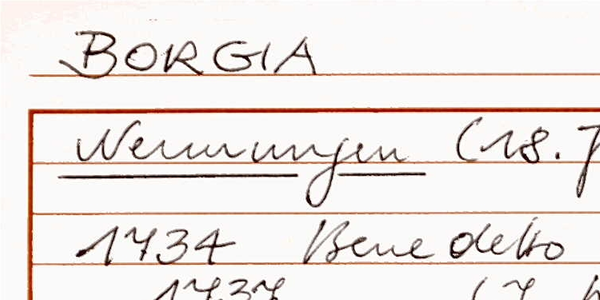 BORGIA
Nennungen (18. J
1734 Benedetto
1737 (7